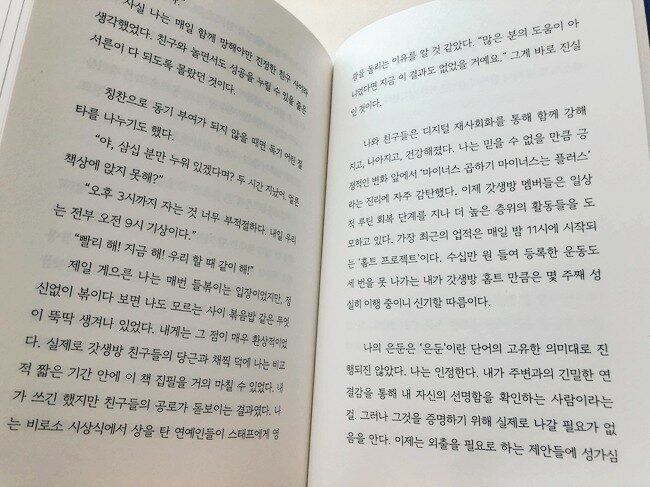 사실 나는 매일 함께 망해야만 진정한 친구 사이라
생각했었다. 친구와 놀면서도 성공을 누릴 수 있을 줄은
서른이 다 되도록 몰랐던 것이다.
칭찬으로 동기 부여가 되지 않을 때면 독기 어린 질
타를 나누기도 했다.
“야, 삼십 분만 누워 있겠다며? 두 시간 지났어, 얼른
책상에 앉지 못해?”
“오후 3시까지 자는 것 너무 부적절하다. 내일 우리
는 전부 오전 9시 기상이다.”
“빨리 해! 지금 해! 우리 할 때 같이 해!”
제일 게으른 나는 매번 들볶이는 입장이었지만, 정
신없이 볶이다 보면 나도 모르는 사이 볶음밥 같은 무엇
이 뚝딱 생겨나 있었다. 내게는 그 점이 매우 환상적이었
다. 실제로 갓생방 친구들의 당근과 채찍 덕에 나는 비교
적 짧은 기간 안에 이 책 집필을 거의 마칠 수 있었다. 내
가 쓰긴 했지만 친구들의 공로가 돋보이는 결과였다. 나
는 비로소 시상식에서 상을 탄 연예인들이 스태프에게 영
광을 돌리는 이유를 알 것 같았다. “많은 분의 도움이 아
니었다면 지금 이 결과도 없었을 거예요.” 그게 바로 진실
인 것이다.
나와 친구들은 디지털 재사회화를 통해 함께 강해
지고, 나아지고, 건강해졌다. 나는 믿을 수 없을 만큼 긍
정적인 변화 앞에서 ‘마이너스 곱하기 마이너스는 플러스’
라는 진리에 자주 감탄했다. 이제 갓생방 멤버들은 일상
적 루틴 회복 단계를 지나 더 높은 층위의 활동들을 도
모하고 있다. 가장 최근의 업적은 매일 밤 11시에 시작되
는 ‘홈트 프로젝트’이다. 수십만 원 들여 등록한 운동도
세 번을 못 나가는 내가 갓생방 홈트 만큼은 몇 주째 성
실히 이행 중이니 신기할 따름이다.
나의 은둔은 ‘은둔’이란 단어의 고유한 의미대로 진
행되진 않았다. 나는 인정한다. 내가 주변과의 긴밀한 연
결감을 통해 내 자신의 선명함을 확인하는 사람이라는
걸. 그러나 그것을 증명하기 위해 실제로 나갈 필요가 없
음을 안다. 이제는 외출을 필요로 하는 제안들에 성가심